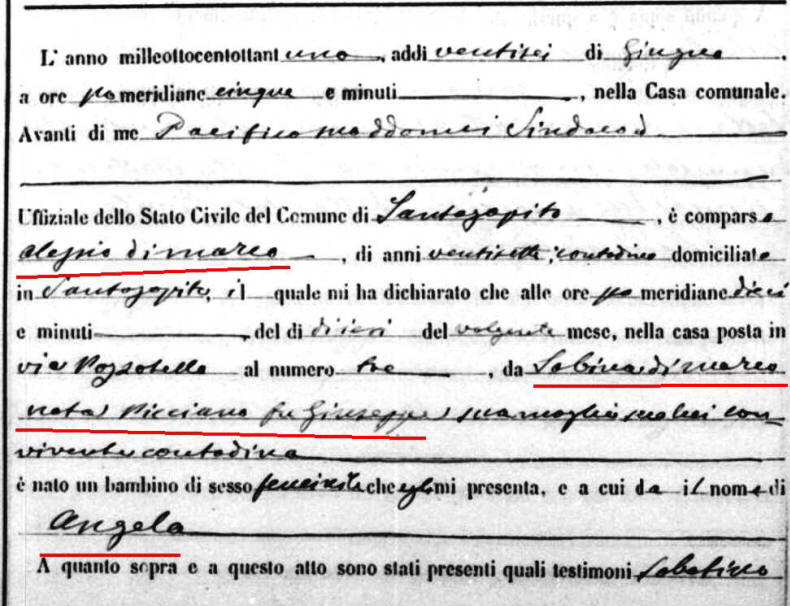 L' anno milleottocentottantuno, addi ventisei di Giugno,
a ore pomeridiane cinque e minuti, nella Casa comunale.
Avanti di me Pacifico Sindaco
Uffiziale dello Stato Civile del Comune di Santozopito, è comparso
Alessio di marco, di anni ventisette, contadino domiciliato
in Santozopito, il quale mi ha dichiarato che alle ore pomeridiane dieci
e minuti, del dì di ieri del volgente mese, nella casa posta in
via Pozzotello al numero tre, da Sabina di marco
nata Picciano fu Giuseppe sua moglie seco lui con-
vivente contadina
è nato un bambino di sesso femminile che egli mi presenta, e a cui da il nome di
Angela
A quanto sopra e a questo atto sono stati presenti quali testimoni Sabatino